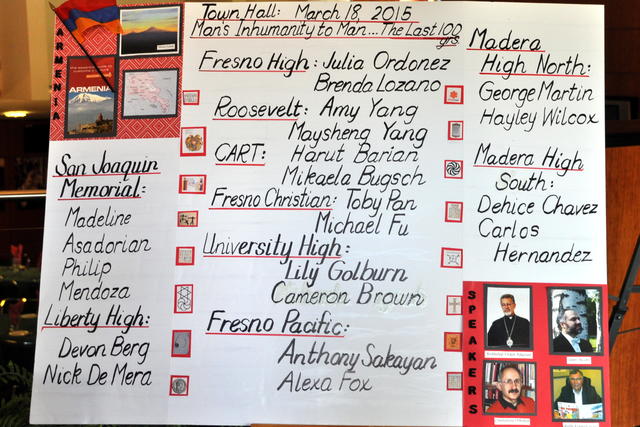 Town Hall: March 18, 2015
Man's Inhumanity to Man... The Last 100 yrs.
ARMENIA
ARMENIA
San Joaquin
Memorial:
Madeline
Asadorian
Philip
Mendoza
Liberty High:
Devon Berg
Nick De Mera
Fresno High: Julia Ordonez
Brenda Lozano
Roosevelt: Amy Yang
Maysheng Yang
CART: Harut Barian
Mikaela Bugsch
Fresno Christian: Toby Pan
Michael Fu
University High:
Lily Golburn
Cameron Brown
Fresno Pacific:
Anthony Sakayan
Alexa Fox
Madera
High North:
George Martin
Hayley Wilcox
Madera High
South:
Dehice Chavez
Carlos
Hernandez
SPEAKERS